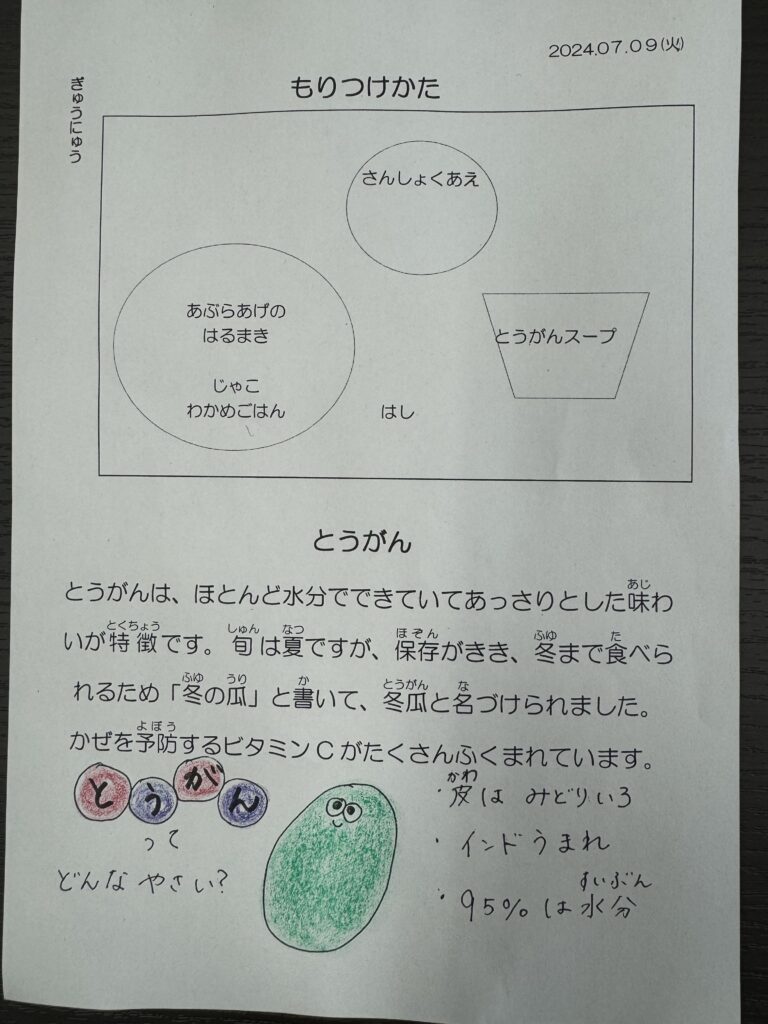 2024.07.09(火)
もりつけかた
ぎゅうにゅう
さんしょくあえ
あぶらあげの
はるまき
じゃこ
わかめごはん
とうがんスープ
はし
とうがん
とうがんは、ほとんど水分でできていてあっさりとした味わ
いが特徴です。旬は夏ですが、保存がきき、冬まで食べら
れるため「冬の瓜」と書いて、冬瓜と名づけられました。
かぜを予防するビタミンCがたくさんふくまれています。
とうがん
って
どんなやさい?
・皮は みどりいろ
・インドうまれ
・95%は水分